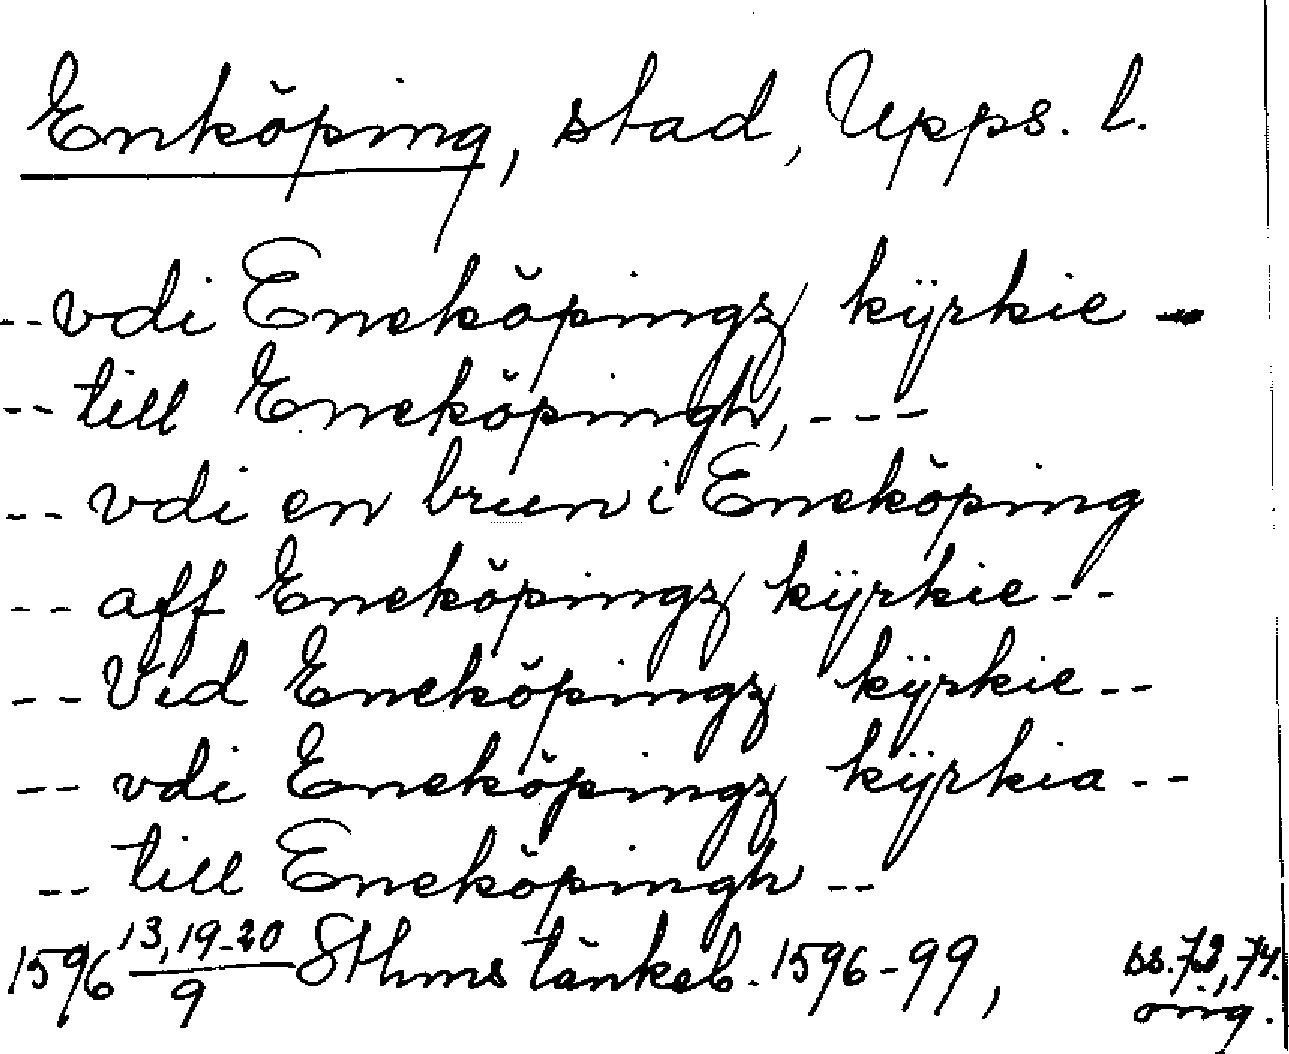 Enköping, stad, Upps. l.
-- vdi Eneköpingz kÿrkie --
-- till Eneköpingh, ---
-- vdi en brun i Eneköping
-- aff Eneköpingz kÿrkie --
-- Vid Eneköpingz kÿrkie --
-- vdi Eneköpingz kÿrkia --
-- till Eneköpingh --
1596 13,19-20/9 Sthms tänkeb. 1596-99, ss. 72, 74.
orig.